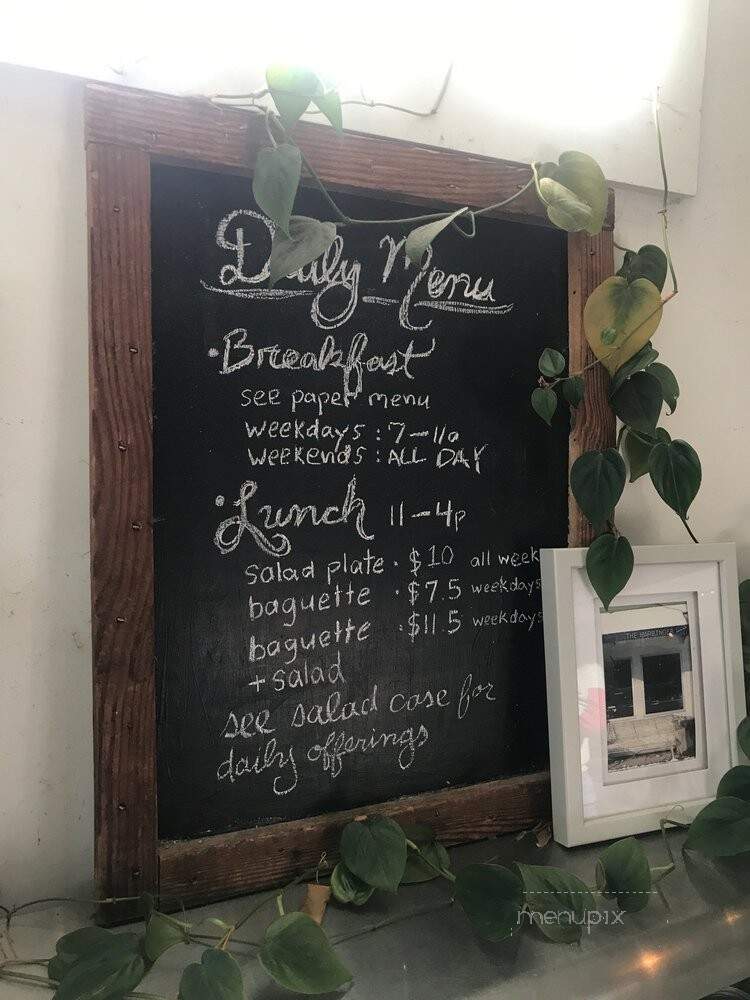 Daily Menu
• Breakfast
see paper menu
weekdays : 7-11a
weekends : ALL DAY
• Lunch 11-4p
salad plate • $10 all week
baguette • $7.5 weekdays
baguette • $11.5 weekdays
+ salad
see salad case for
daily offerings
THE HARBINGER
menupix